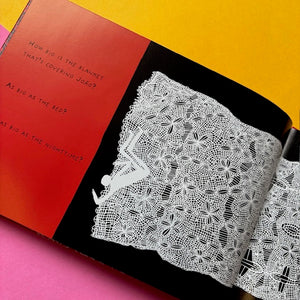 HOW BIG IS THE BLANKET
THAT'S COVERING JOKO?
AS BIG AS THE BED?
AS BIG AS THE NIGHTTIME?